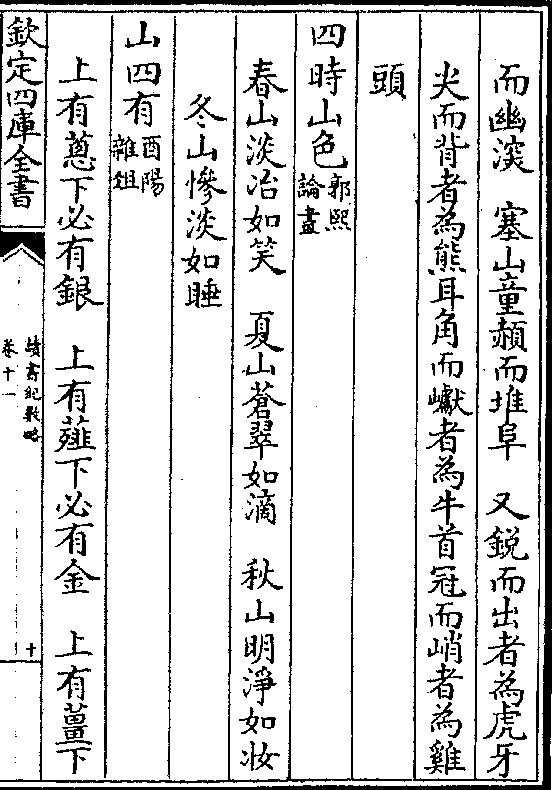 而幽深　塞山童赬而堆阜　又鋭而出者為虎牙
尖而背者為熊耳角而巘者為牛首冠而峭者為雞
頭
四時山色郭熙論畫
春山淡冶如笑　夏山蒼翠如滴　秋山明淨如妝
冬山慘淡如睡
山四有酉陽雜俎
上有蔥下必有銀　上有薤下必有金　上有薑下
欽定四庫全書
讀書紀數略
卷十一
十